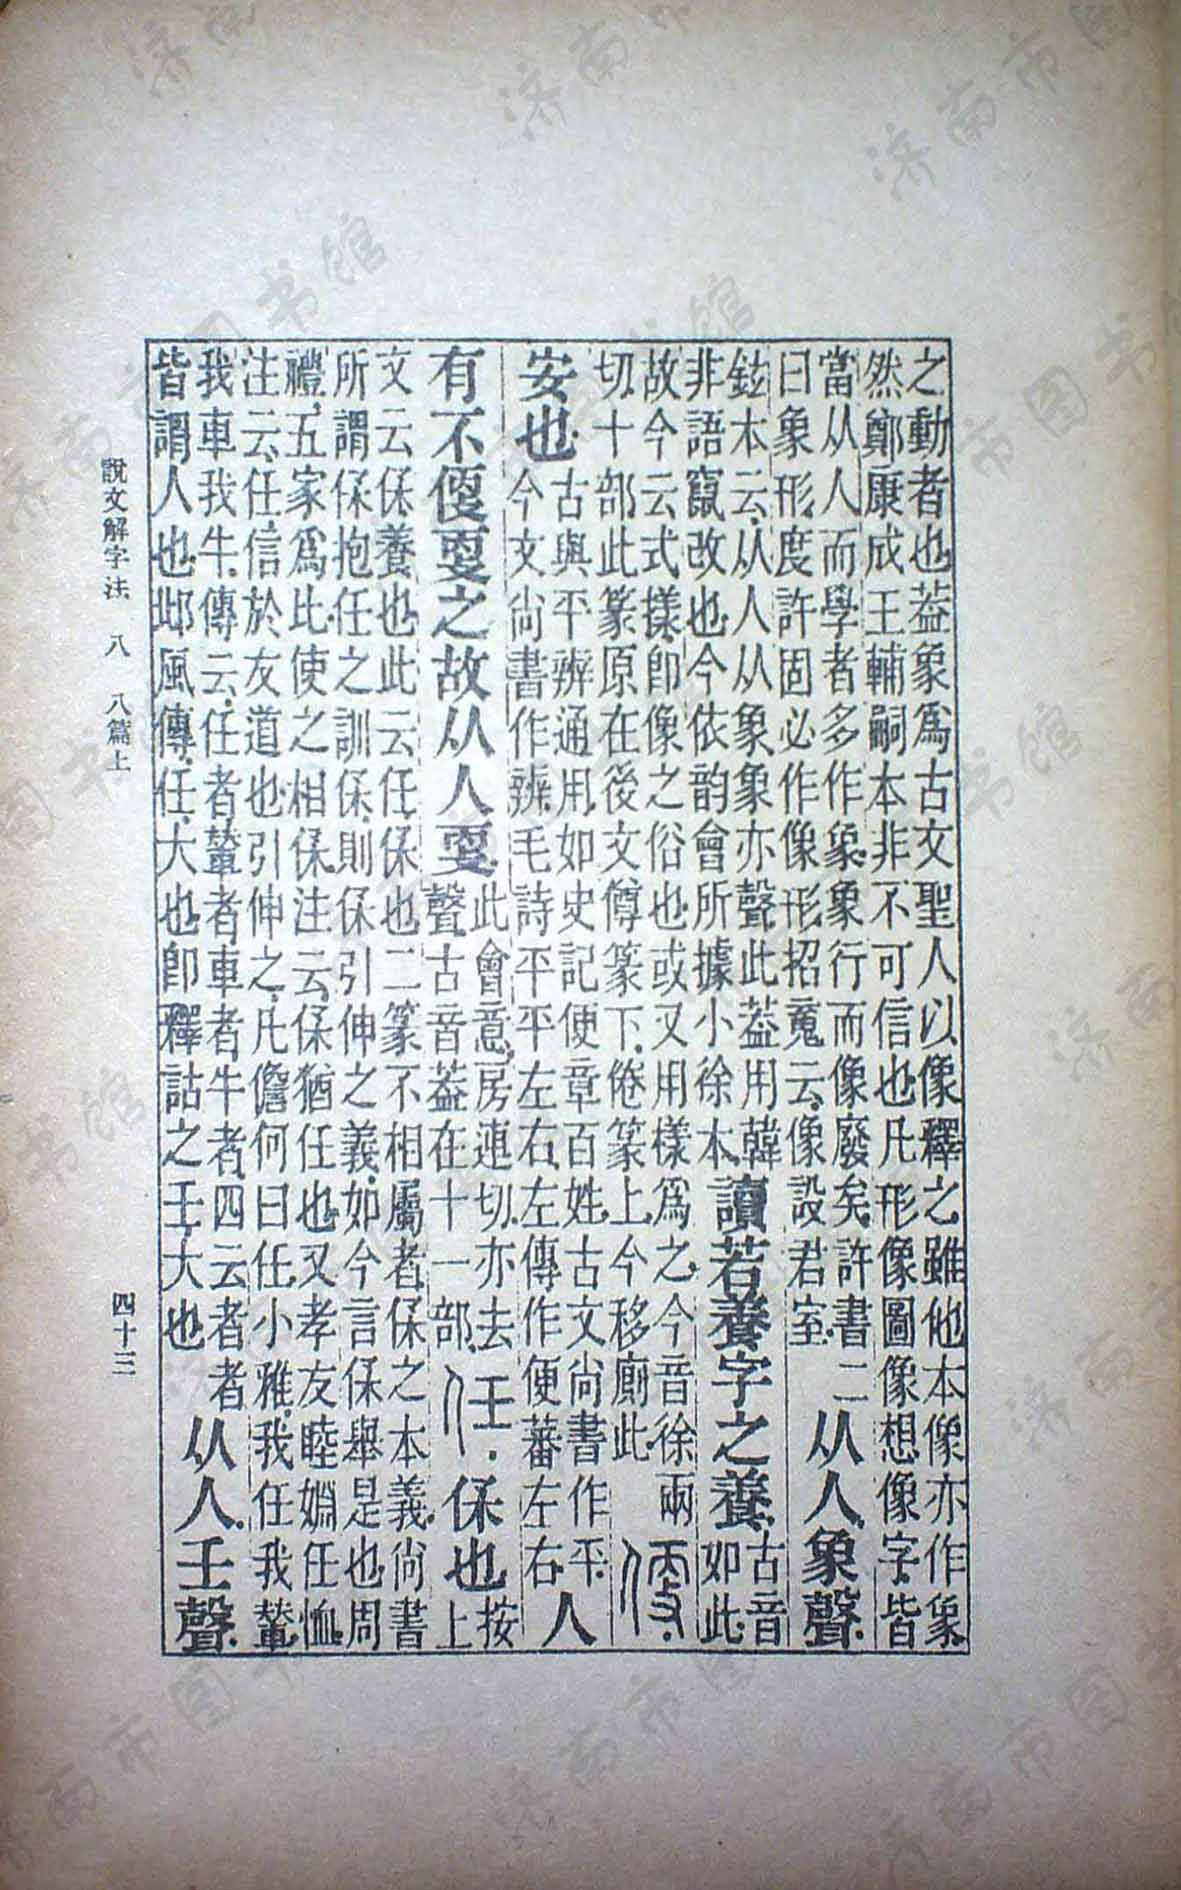 之動者也葢象爲古文聖人以像釋之雖他本像亦作象
然鄭康成王輔嗣本非不可信也凡形像圖像想像字皆
當从人而學者多作象象行而像廢矣許書二
曰象形度許固必作像形招䰟云像設君室
从人象聲
鉉本云从人从象象亦聲此葢用韓
非語竄改也今依韵會所據小徐本
讀若養字之養
古音
如此
故今云式樣卽像之俗也或又用樣爲之今音徐兩
切十部此篆原在後文僔篆下倦篆上今移廁此
安也
古與平辨通用如史記便章百姓古文尚書作平
今文尚書作辨毛詩平平左右左傳作便蕃左右
人
有不便更之故从人更
此會意房連切亦去
聲古音葢在十一部
任
保也
按
上
文云保養也此云任保也二篆不相屬者保之本義尚書
所謂保抱任之訓保則保引伸之義如今言保舉是也周
禮五家爲比使之相保注云保猶任也又孝友睦婣任恤
注云任信於友道也引伸之凡儋何曰任小雅我任我輦
我車我牛傳云任者輦者車者牛者四云者者
皆謂人也邶風傳任大也卽釋詁之壬大也
从人壬聲
說文解字注 八 八篇上 四十三
济南市图书馆